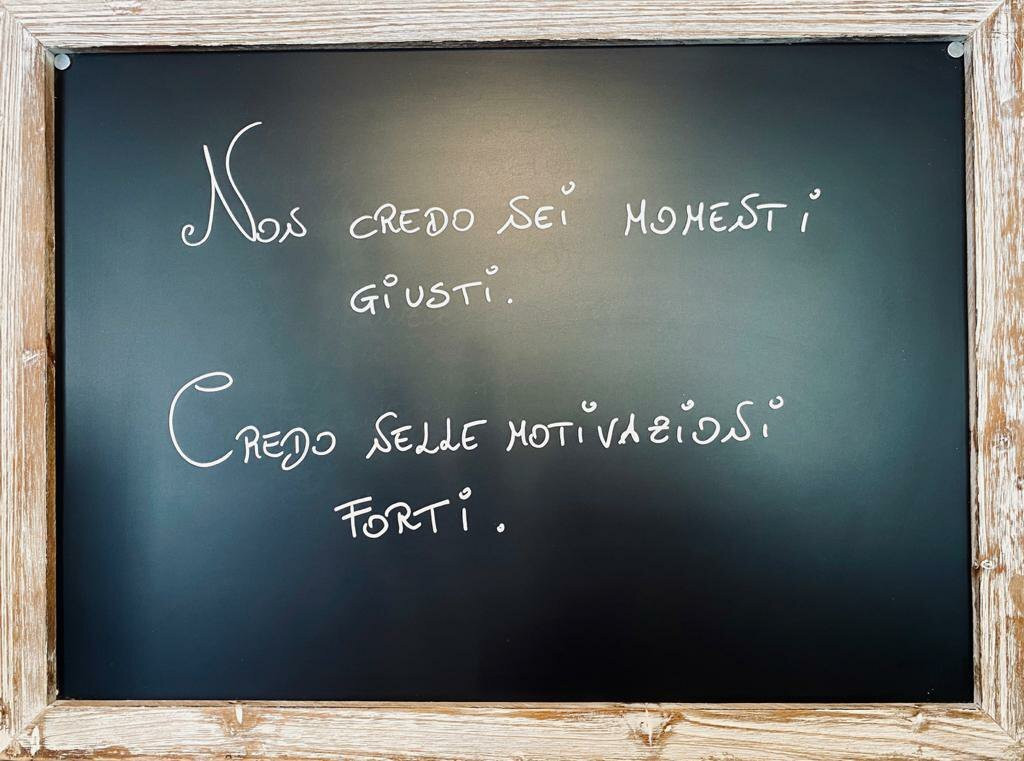 Non CREDO NEi MOMENTi
GiUSTi.
CREDO NELLE MOTiVAZiONi
FORTi.